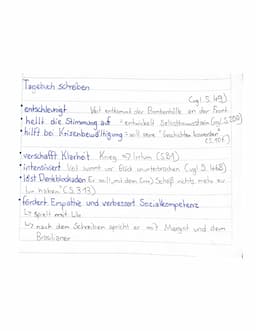 Tagebuch schreiben
(vgl. S. 49)
• entschleunigt Veit entkommt der Bombenhölle an der Front
• hellt die Stimmung auf - entwickelt Selbstbewusstsein (vgl. S. 200)
• hilft bei Krisenbewältigung - will seine "Geschichten loswerden"
(S. 101)
• verschafft Klarheit Krieg => Irrtum (S. 81)
• intensiviert Veit summt vor Glück ununterbrochen (vgl. S. 448)
• löst Denkblockaden Er will „mit dem Scheiß nichts mehr zu
tun haben" (S. 313)
• fördert Empathie und verbessert Sozialkompetenz
↳ spielt mit Lilo
↳ nach dem Schreiben spricht er mit Margot und dem
Brasilianer